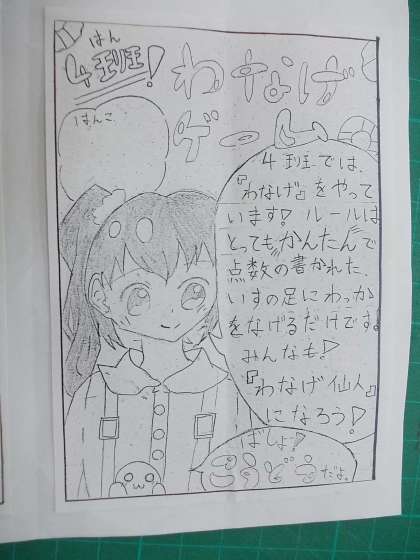 はん
4班!
わなげ
ゲーム
はんこ
4班では、
『わなげ』をやって
います!ルールは
とっても"かんたん"で
点数の書かれた、
いすの足にわっか
をなげるだけです。
みんなも!
『わなげ仙人』
になろう!
ばしょ!
だよ。